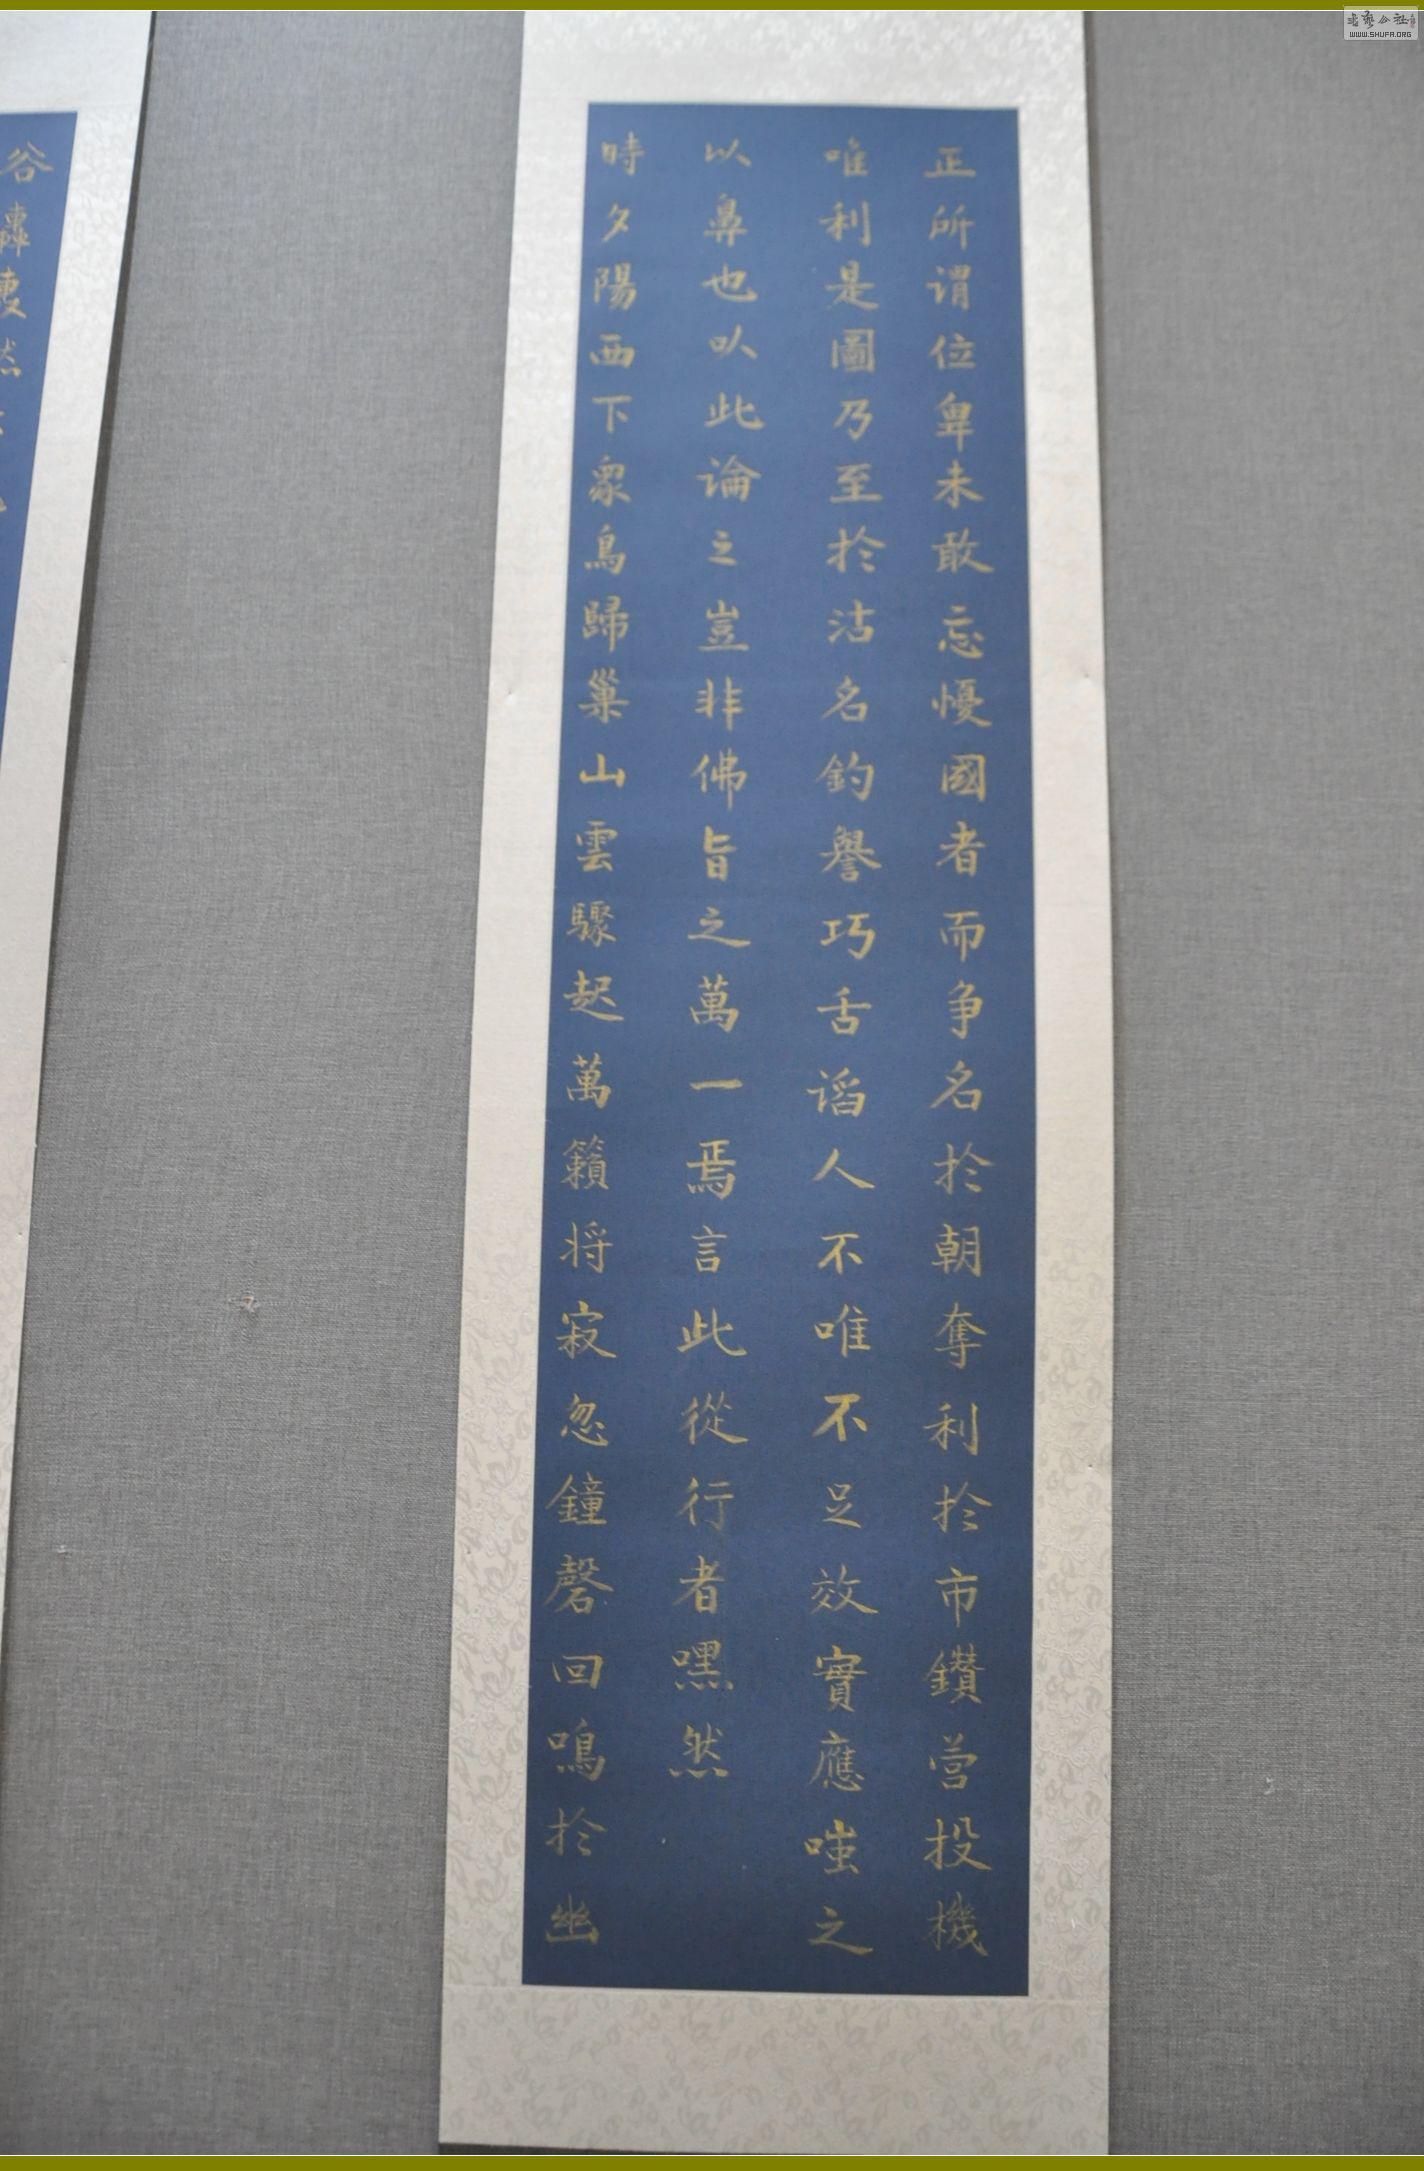 正所谓位卑未敢忘憂國者而争名於朝奪利於市鑽营投機
唯利是圖乃至於沽名釣譽巧舌谄人不唯不足效實應嗤之
以鼻也以此論之豈非佛旨之萬一焉言此從行者嘿然
時夕陽西下衆鳥歸巢山雲驟起萬籟将寂忽鐘磬回鳴於幽
谷
然
WWW.SHUFA.ORG